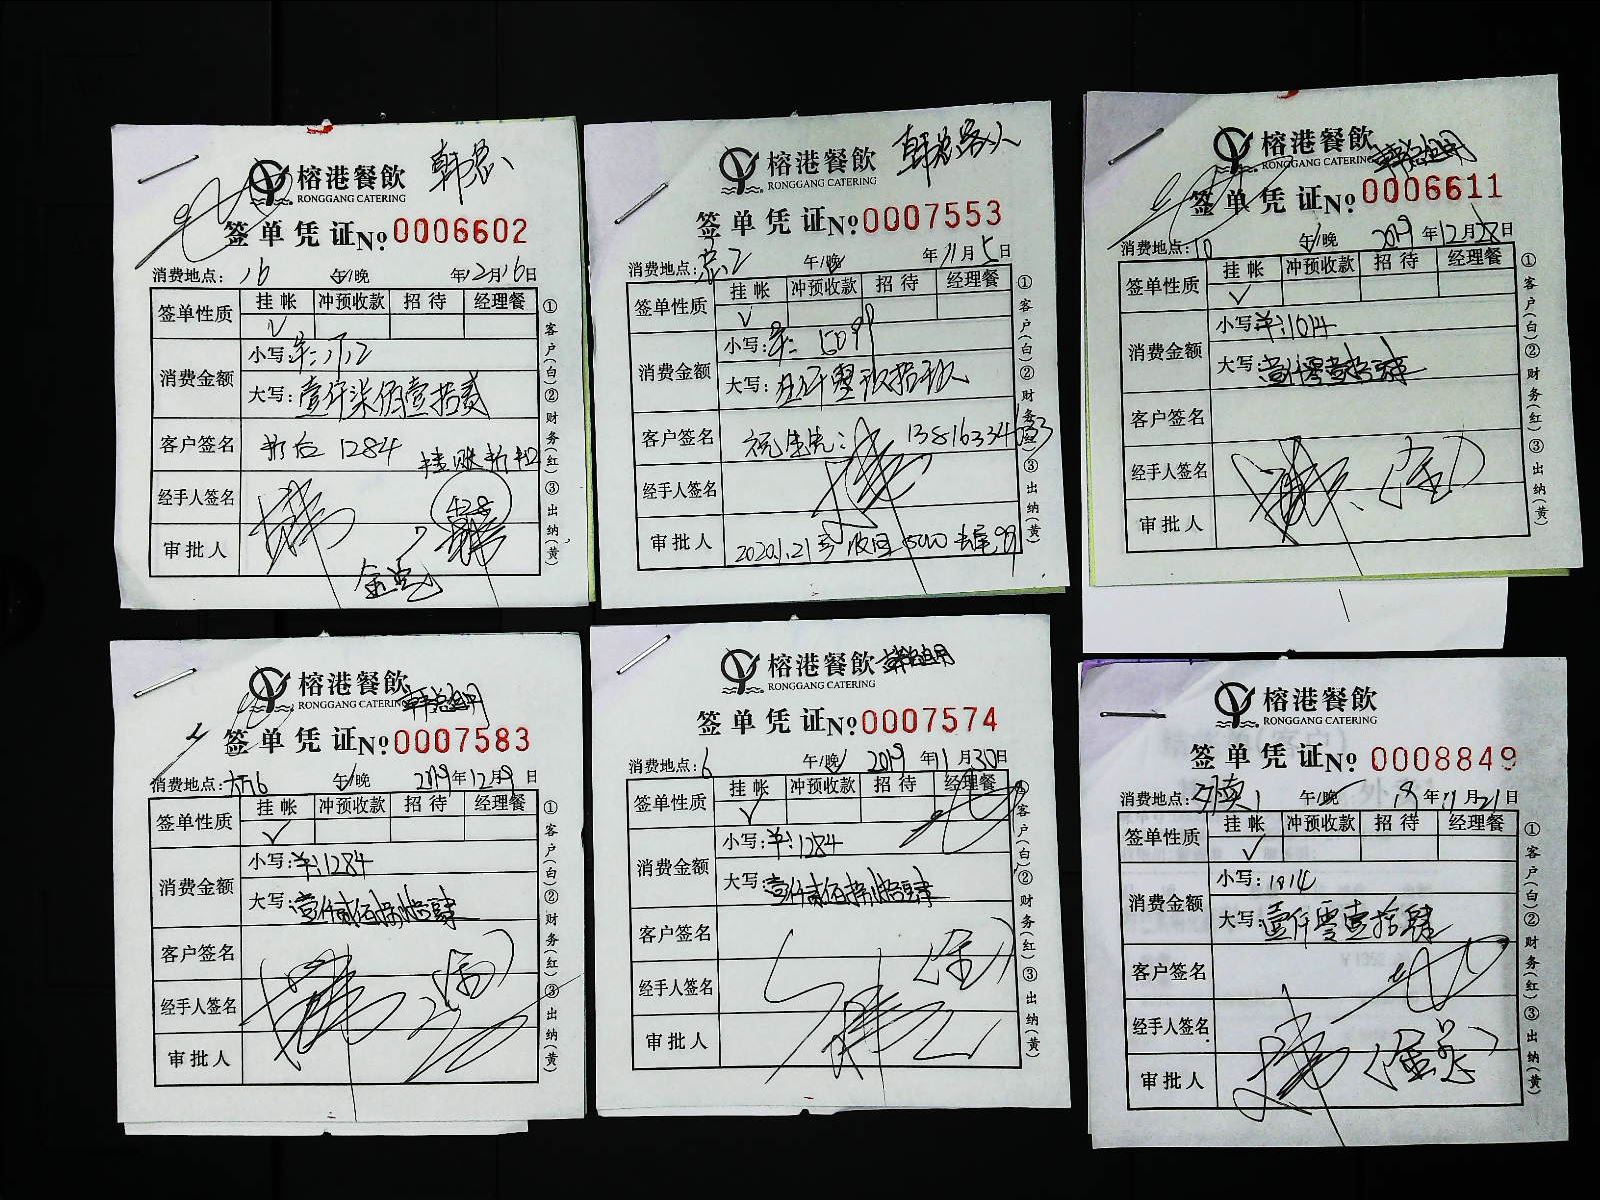 榕港餐飲 韩总
RONGGANG CATERING
签单凭证 No 0006602
消费地点: 16 午/晚 年12月16日
签单性质 挂帐 冲预收款 招待 经理餐
消费金额 小写: ¥: 1712
大写: 壹仟柒佰壹拾贰
客户签名 1284
经手人签名 428
审批人
①客户(白)②财务(红)③出纳(黄)
榕港餐飲 韩总客人
RONGGANG CATERING
签单凭证 No 0007553
消费地点: 午/晚 年11月5日
签单性质 挂帐 冲预收款 招待 经理餐
消费金额 小写: ¥: 5099
大写: 伍仟零玖拾玖
客户签名 祝先生: 13816334
经手人签名
审批人 2020.1.21 收回5000 去尾99
①客户(白)②财务(红)③出纳(黄)
榕港餐飲
RONGGANG CATERING
签单凭证 No 0006611
消费地点: 10 午/晚 2019年12月28日
签单性质 挂帐 冲预收款 招待 经理餐
消费金额 小写: ¥: 1014
大写: 壹仟零壹拾肆
客户签名
经手人签名
审批人
①客户(白)②财务(红)③出纳(黄)
榕港餐飲
RONGGANG CATERING
签单凭证 No 0007583
消费地点: 午/晚 2019年12月9日
签单性质 挂帐 冲预收款 招待 经理餐
消费金额 小写: ¥: 1284
大写: 壹仟贰佰捌拾肆
客户签名
经手人签名
审批人
①客户(白)②财务(红)③出纳(黄)
榕港餐飲
RONGGANG CATERING
签单凭证 No 0007574
消费地点: 6 午/晚 2019年11月30日
签单性质 挂帐 冲预收款 招待 经理餐
消费金额 小写: ¥: 1284
大写: 壹仟贰佰捌拾肆
客户签名
经手人签名
审批人
①客户(白)②财务(红)③出纳(黄)
榕港餐飲
RONGGANG CATERING
签单凭证 No 0008849
消费地点: 午/晚 年11月21日
签单性质 挂帐 冲预收款 招待 经理餐
消费金额 小写: 1014
大写: 壹仟零壹拾肆
客户签名
经手人签名
审批人
①客户(白)②财务(红)③出纳(黄)